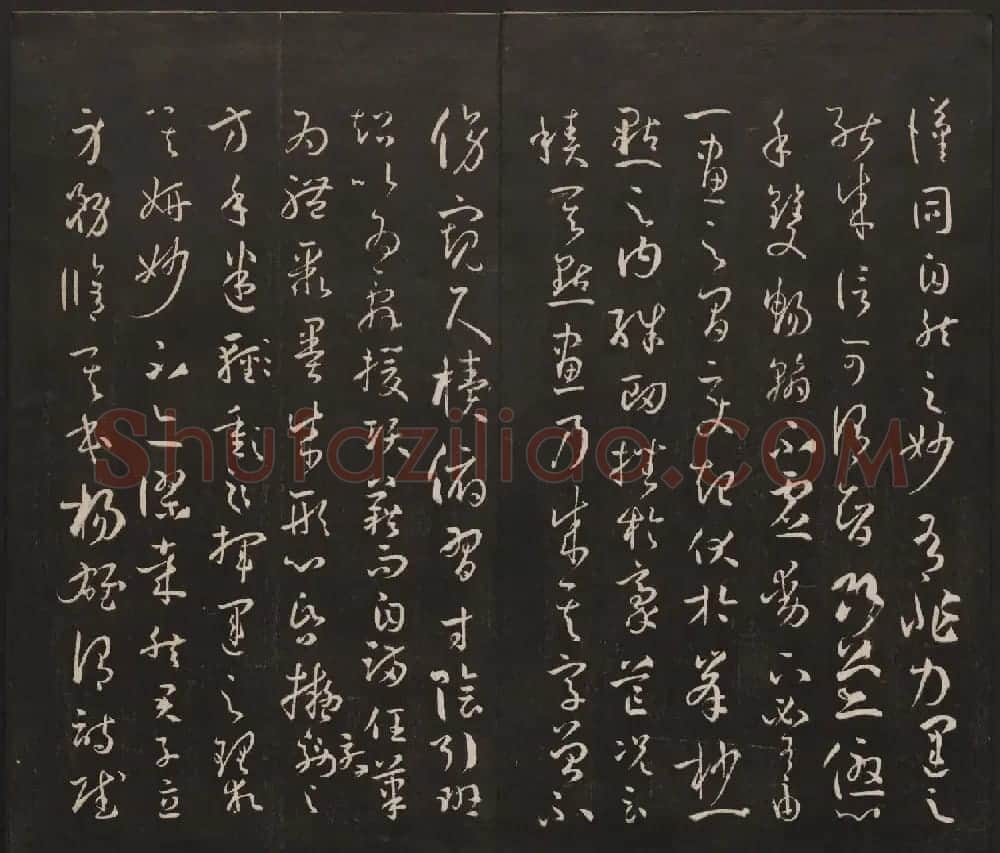 漢同自然之妙有非力運之
能成信可謂智巧兼優心
手雙暢翰不虛動下必有由
一畫之間變起伏於峯杪一
點之內殊衄挫於豪芒況云
積其點畫乃成其字曾不
傍窺尺櫝俯習寸陰引班
超以為辭援項籍而自滿任筆
為體聚墨成形心昏擬效之
方手迷揮運之理求
其妍妙不亦謬哉然君子立
身務脩其本楊雄謂詩賦
Shufaziliao.com